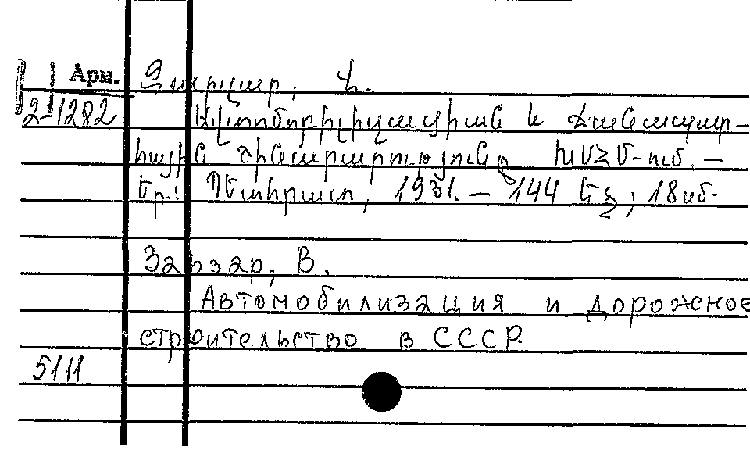 Арм. Զարզար, Վ.
2-1282 Ավտոմոբիլիզացիան և ճանապար-
հային շինարարությունը ԽՍՀՄ-ում. –
Եր.: Պետհրատ, 1931. – 144 եջ; 18սմ.
Зарзар, В.
Автомобилизация и дорожное
строительство в СССР.
5111